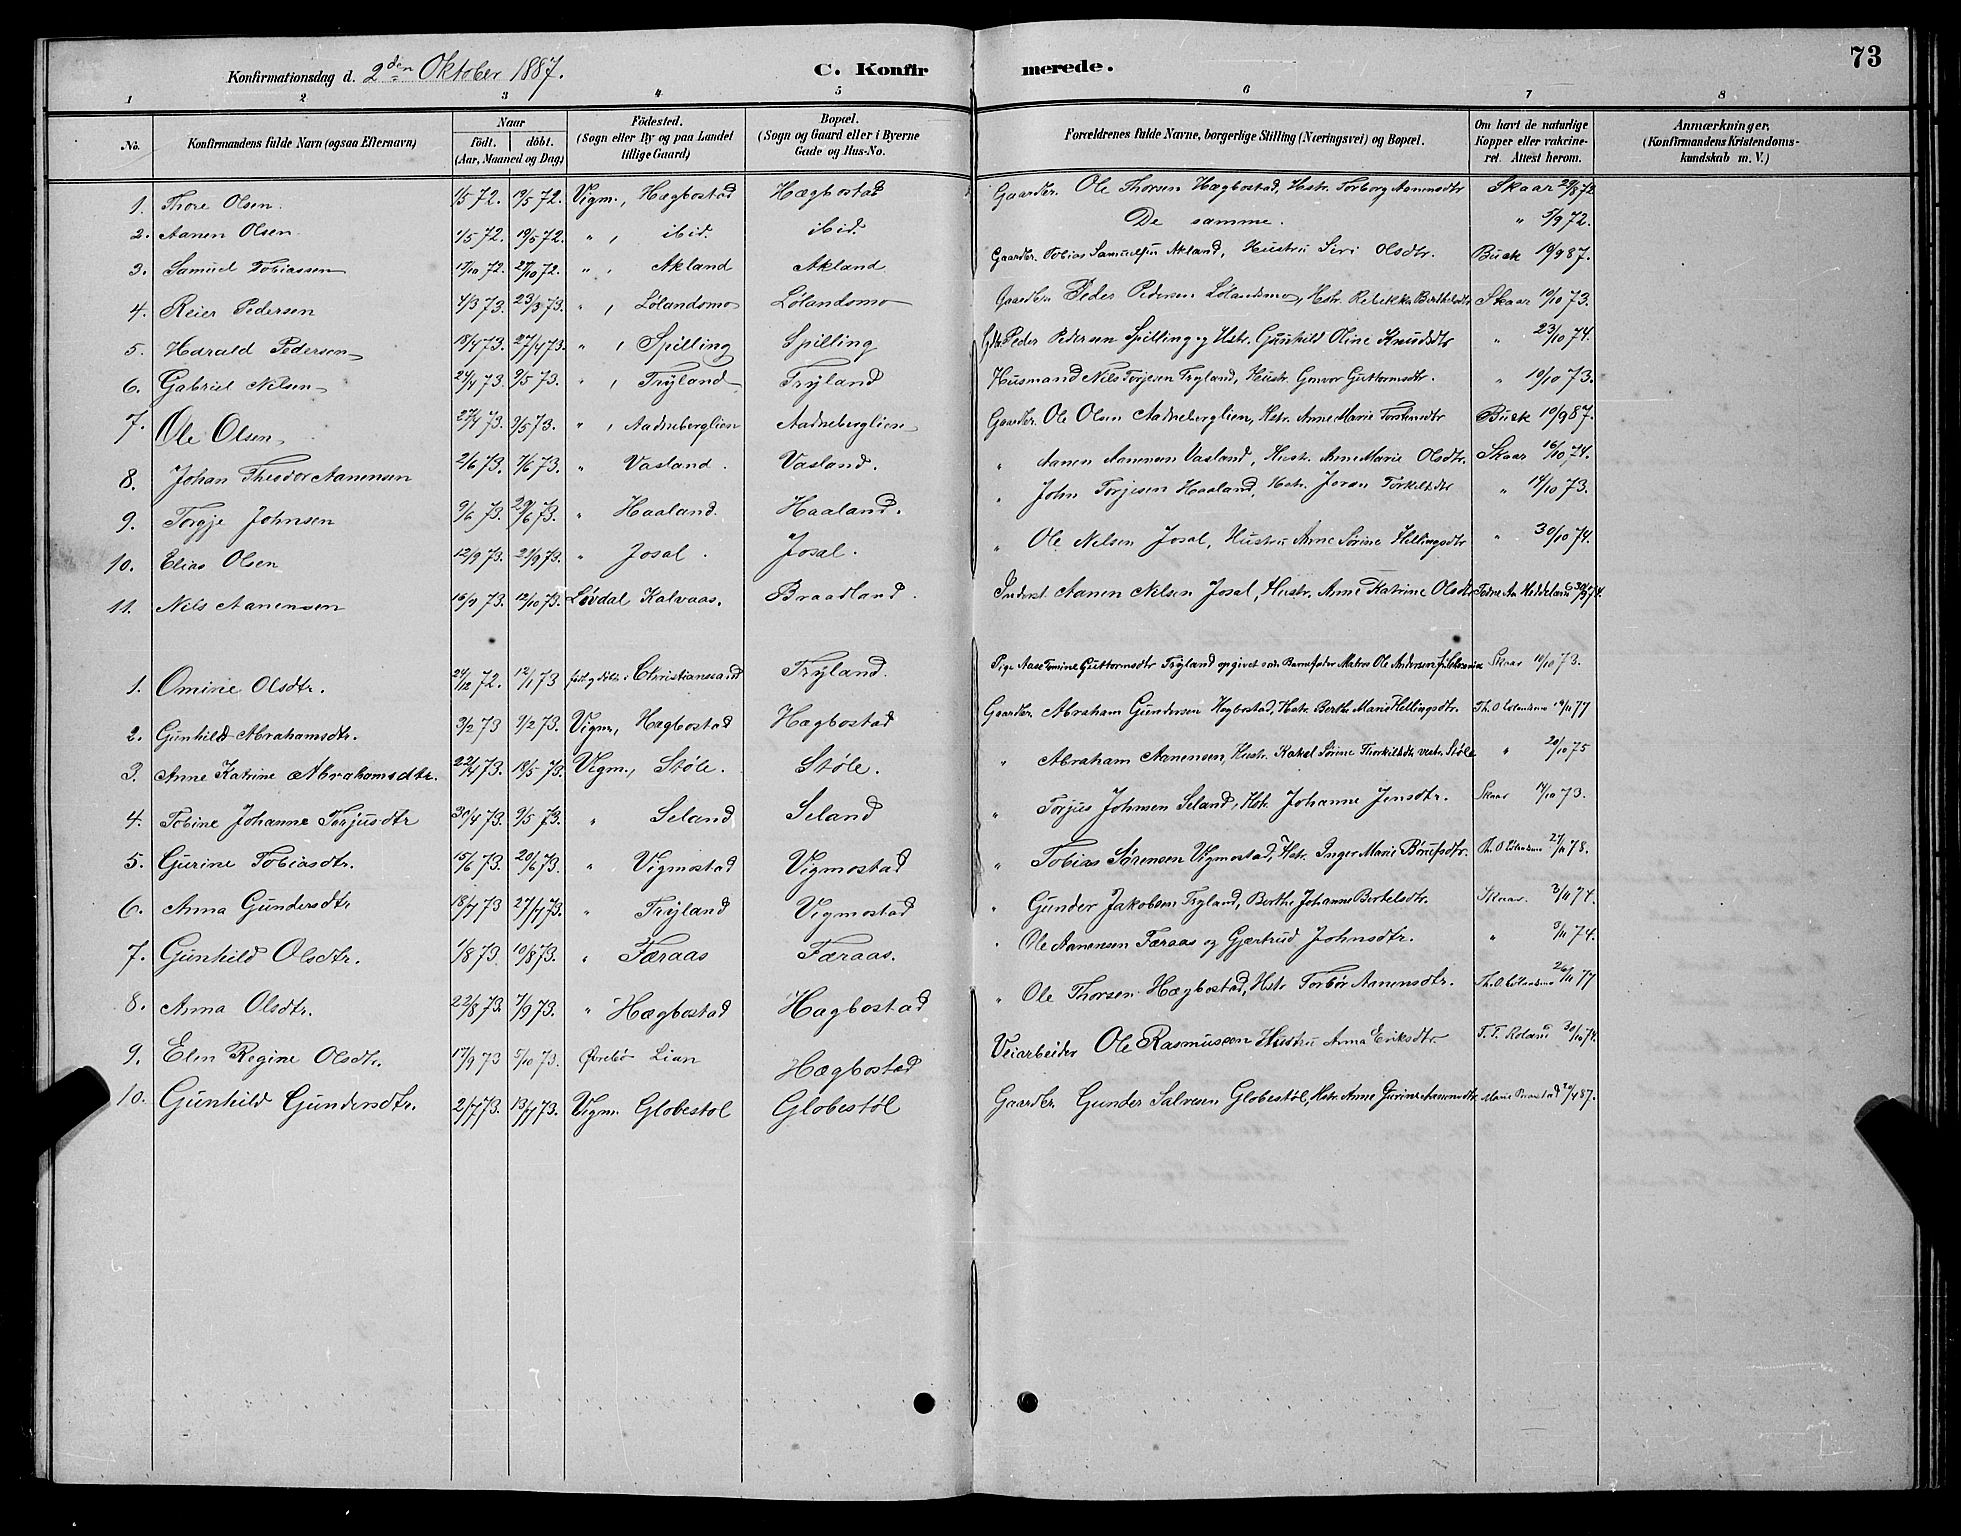 73
Konfirmationsdag d. 2den Oktober 1887. C. Konfirmerede.
1 2 3 4 5 6 7 8
No. Konfirmandens fulde Navn (ogsaa Efternavn) Naar födt. döbt. (Aar, Maaned og Dag) Födested. (Sogn eller By og paa Landet tillige Gaard) Bopæl. (Sogn og Gaard eller i Byerne Gade og Hus-No. Forældrenes fulde Navne, borgerlige Stilling (Næringsvei) og Bopæl. Om havt de naturlige Kopper eller vakcineret. Attest herom. Anmærkninger. (Konfirmandens Kristendomskundskab m. V.)
1. Thore Olsen. 1/5 72. 19/5 72. Vigm., Hægbostad Hægbostad Gaardbr. Ole Thorsen Hægbostad, Hstr. Torborg Aanensdtr Skaar 29/8 72
2. Aanen Olsen 1/5 72. 19/5 72. " , ibid. ibid. De samme. " 5/9 72.
3. Samuel Tobiassen 17/10 72. 27/10 72. " , Akland Akland Gaardbr. Tobias Samuelsen Akland, Hustru Siri Olsdtr. Buck 19/9 87.
4. Reier Pedersen 4/3 73. 23/3 73. " , Lölandsmo Lölandsmo Gaardbr. Peder Pedersen Lölandsmo, Hstr. Rebekka Berthelsdtr Skaar 10/10 73.
5. Harald Pedersen 18/4 73. 27/4 73. " , Spilling Spilling Gdb. Peder Pedersen Spilling og Hstr. Gunhild Oline Knudsdtr " 23/10 74.
6. Gabriel Nilsen 24/4 73. 9/5 73. " , Tryland Tryland Husmand Nils Torjesen Tryland, Hustr. Gunvor Guttormsdtr. " 10/10 73.
7. Ole Olsen 27/4 73. 9/5 73. " , Aadneberglien Aadneberglien Gaardbr. Ole Olsen Aadneberglien, Hstr. Anne Marie Torstensdtr Buck 19/9 87.
8. Johan Theodor Aanensen 2/6 73. 7/6 73. " Vasland. Vasland. " Aanen Aanensen Vasland, Hustr. Anne Marie Olsdtr. Skaar 16/10 74.
9. Torgje Johnsen 9/6 73. 29/6 73. " Haaland. Haaland. " John Torjesen Haaland, Hstr. Joran Torkelsdtr " 14/10 73.
10. Elias Olsen 12/9 73. 21/9 73. " Josal. Josal. " Ole Nilsen Josal, Hustru Anne Sørine Hellingsdtr " 30/10 74.
11. Nils Aanensen 16/9 73. 12/10 73. Løvdal Kalvaas. Braadland. Inderst Aanen Nilsen Josal, Hustr. Anne Katrine Olsdtr Aa. Heddeland 30/9 74.
1. Omine Olsdtr. 24/12 72. 12/1 73 født og døbt i Christianssand Tryland. Pige Aase Tomine Guttormsdtr Tryland opgivet som Barnefader Matros Ole Andersen Skaar 10/10 73.
2. Gunhild Abrahamsdtr. 3/2 73 9/2 73. Vigm., Hægbostad Hægbostad Gaardbr. Abraham Gundersen Hægbostad, Hstr. Berthe Marie Hellingsdtr. Th. O. Lölandsmo 19/11 77
3. Anne Katrine Abrahamsdtr. 22/4 73. 18/5 73. Vigm., Støle. Støle. " Abraham Aanensen, Hustr. Rakel Sørine Thorkilsdtr vestr. Støle " 20/10 75
4. Tobine Johanne Torjusdtr 30/4 73. 9/5 73. " Seland Seland " Torjus Johnsen Seland, Hstr. Johanne Jensdtr. Skaar 14/10 73.
5. Gurine Tobiasdtr. 15/6 73. 20/6 73. " Vigmostad Vigmostad " Tobias Sørensen Vigmostad, Hstr. Inger Marie Børufsdtr. Th. O. Lölandsmo 27/11 78.
6. Anna Gundersdtr 18/7 73 27/7 73. " Tryland Vigmostad " Gunder Jakobsen Tryland, Berthe Johanne Bertelsdtr. Skaar. 3/11 74.
7. Gunhild Olsdtr. 1/8 73. 10/8 73. " Færaas Færaas. " Ole Aanensen Færaas og Gjertrud Johnsdtr. " 9/11 74.
8. Anna Olsdtr. 22/8 73. 7/9 73. " Hægbostad Hægbostad " Ole Thorsen Hægbostad, Hstr Torbør Aanensdtr. Th. O. Lölandsmo 26/11 77
9. Elen Regine Olsdtr. 17/9 73 5/10 73. Øvrebø Lian Hægbostad Veiarbeider Ole Rasmussen Hustru Anna Eriksdtr. T. T. Roland 30/10 74.
10. Gunhild Gundersdtr. 2/7 73. 13/7 73. Vigm. Globestøl Globestøl Gaardbr. Gunder Salvesen Globestøl, Hstr. Anne Gurine Aanensdtr. Marie 20/4 87.